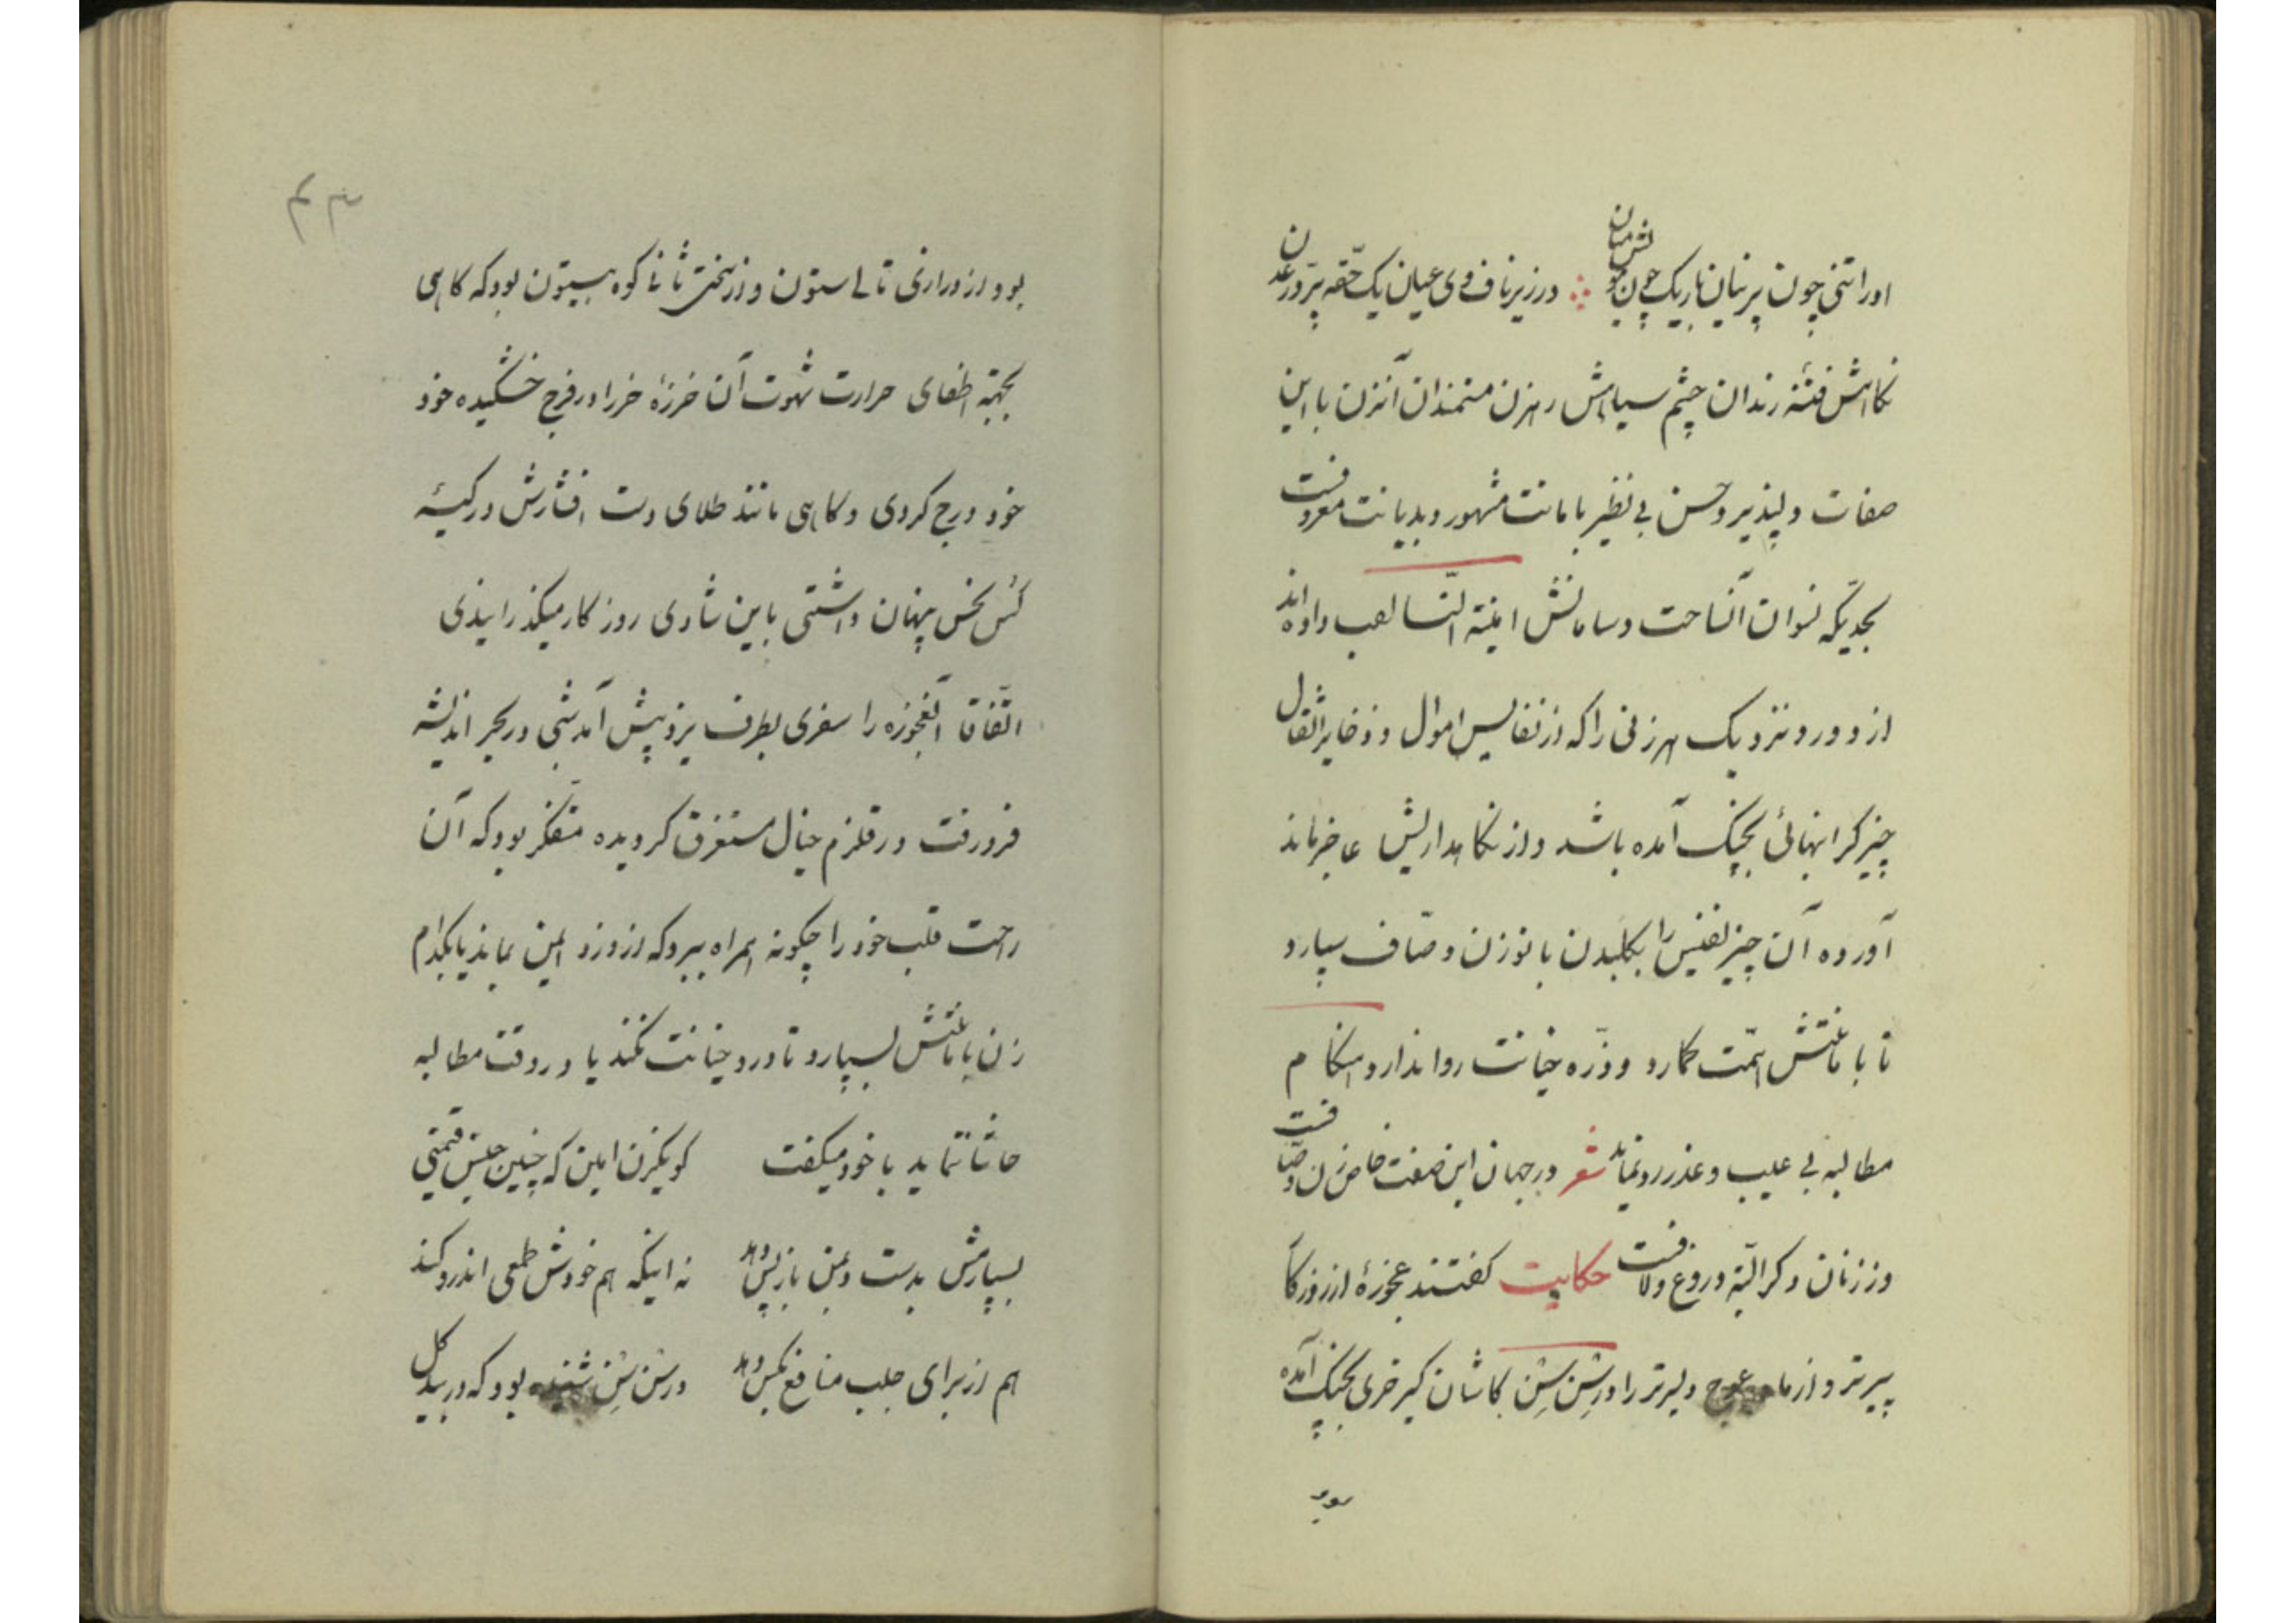 او را تنی چون پرنیان باریک چون مو لش میان ؞ در زیر ناف وی عیان یک حقّه پر درّ عدن
نکاهش فتنهٔ رندان چشم سیاهش رهزن مستمندان آنزن با این
صفات دلپذیر و حسن بی نظیر بامانت مشهور و بدیانت معروفست
بحدیکه نسوان آنساحت و سامانش امینة النّسا لقب داده اند
از دور و نزدیک هر زنی را که از نفایس اموال و ذخایر اثقال
چیز کرانبهائی بچنک آمده باشد و از نکاهداریش عاجز ماند
آورده آن چیز نفیس را بکلبدن بانو زن وصّاف سپارد
تا بامانتش همّت کمارد و ذرّه خیانت روا ندارد هنکام
مطالبه بی عیب و عذر رد نماید شعر در جهان این صفت خاص زن وصّافست
وز زنان دکر البتّه دروغ و لافست حکایت کفتند عجوزهٔ از روزکار
پیرتر و از مادر عوج دلیرتر را در شِن شِن کاشان کیر خری بچنک آمده
بود
بود از درازی تالی ستون و از سختی ثانی کوه بیستون بود که کاهی
بجهته اطفای حرارت شهوت آن خرزهٔ خر را در فرج خشکیده خود
خود درج کردی و کاهی مانند طلای دست افشارش در کیسهٔ
کُس نحس پنهان داشتی باین شادی روزکار میکذرانیدی
اتّفاقا آنعجوزه را سفری بطرف یزد پیش آمد شبی در بحر اندیشه
فرو رفت در قلزم خیال مستغرق کردیده متفکّر بود که آن
راحت قلب خود را چکونه همراه ببرد که از دزد ایمن بماند یا بکدام
زن بامانتش بسپارد تا در او خیانت نکند یا در وقت مطالبه
حاشا ننماید با خود میکفت کو یکزن امین که چنین جنس قیمتی
بسپارمش بدست و بمن باز پس دهد نه اینکه هم خودش طمعی اندرو کند
هم از برای جلب منافع بکس دهد در شِن شِن شنیده بود که در بیدکل